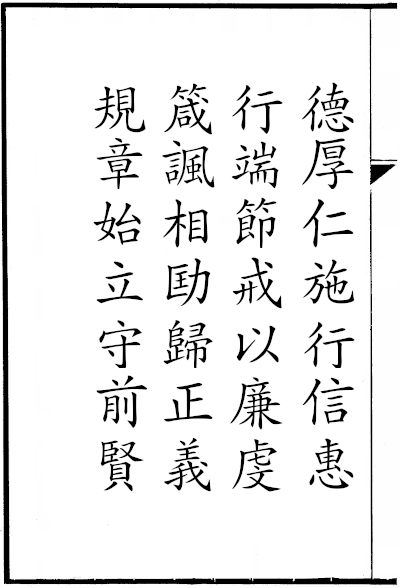 德厚仁施行信惠
行端節戒以廉虔
箴諷相劻歸正義
規章始立守前賢